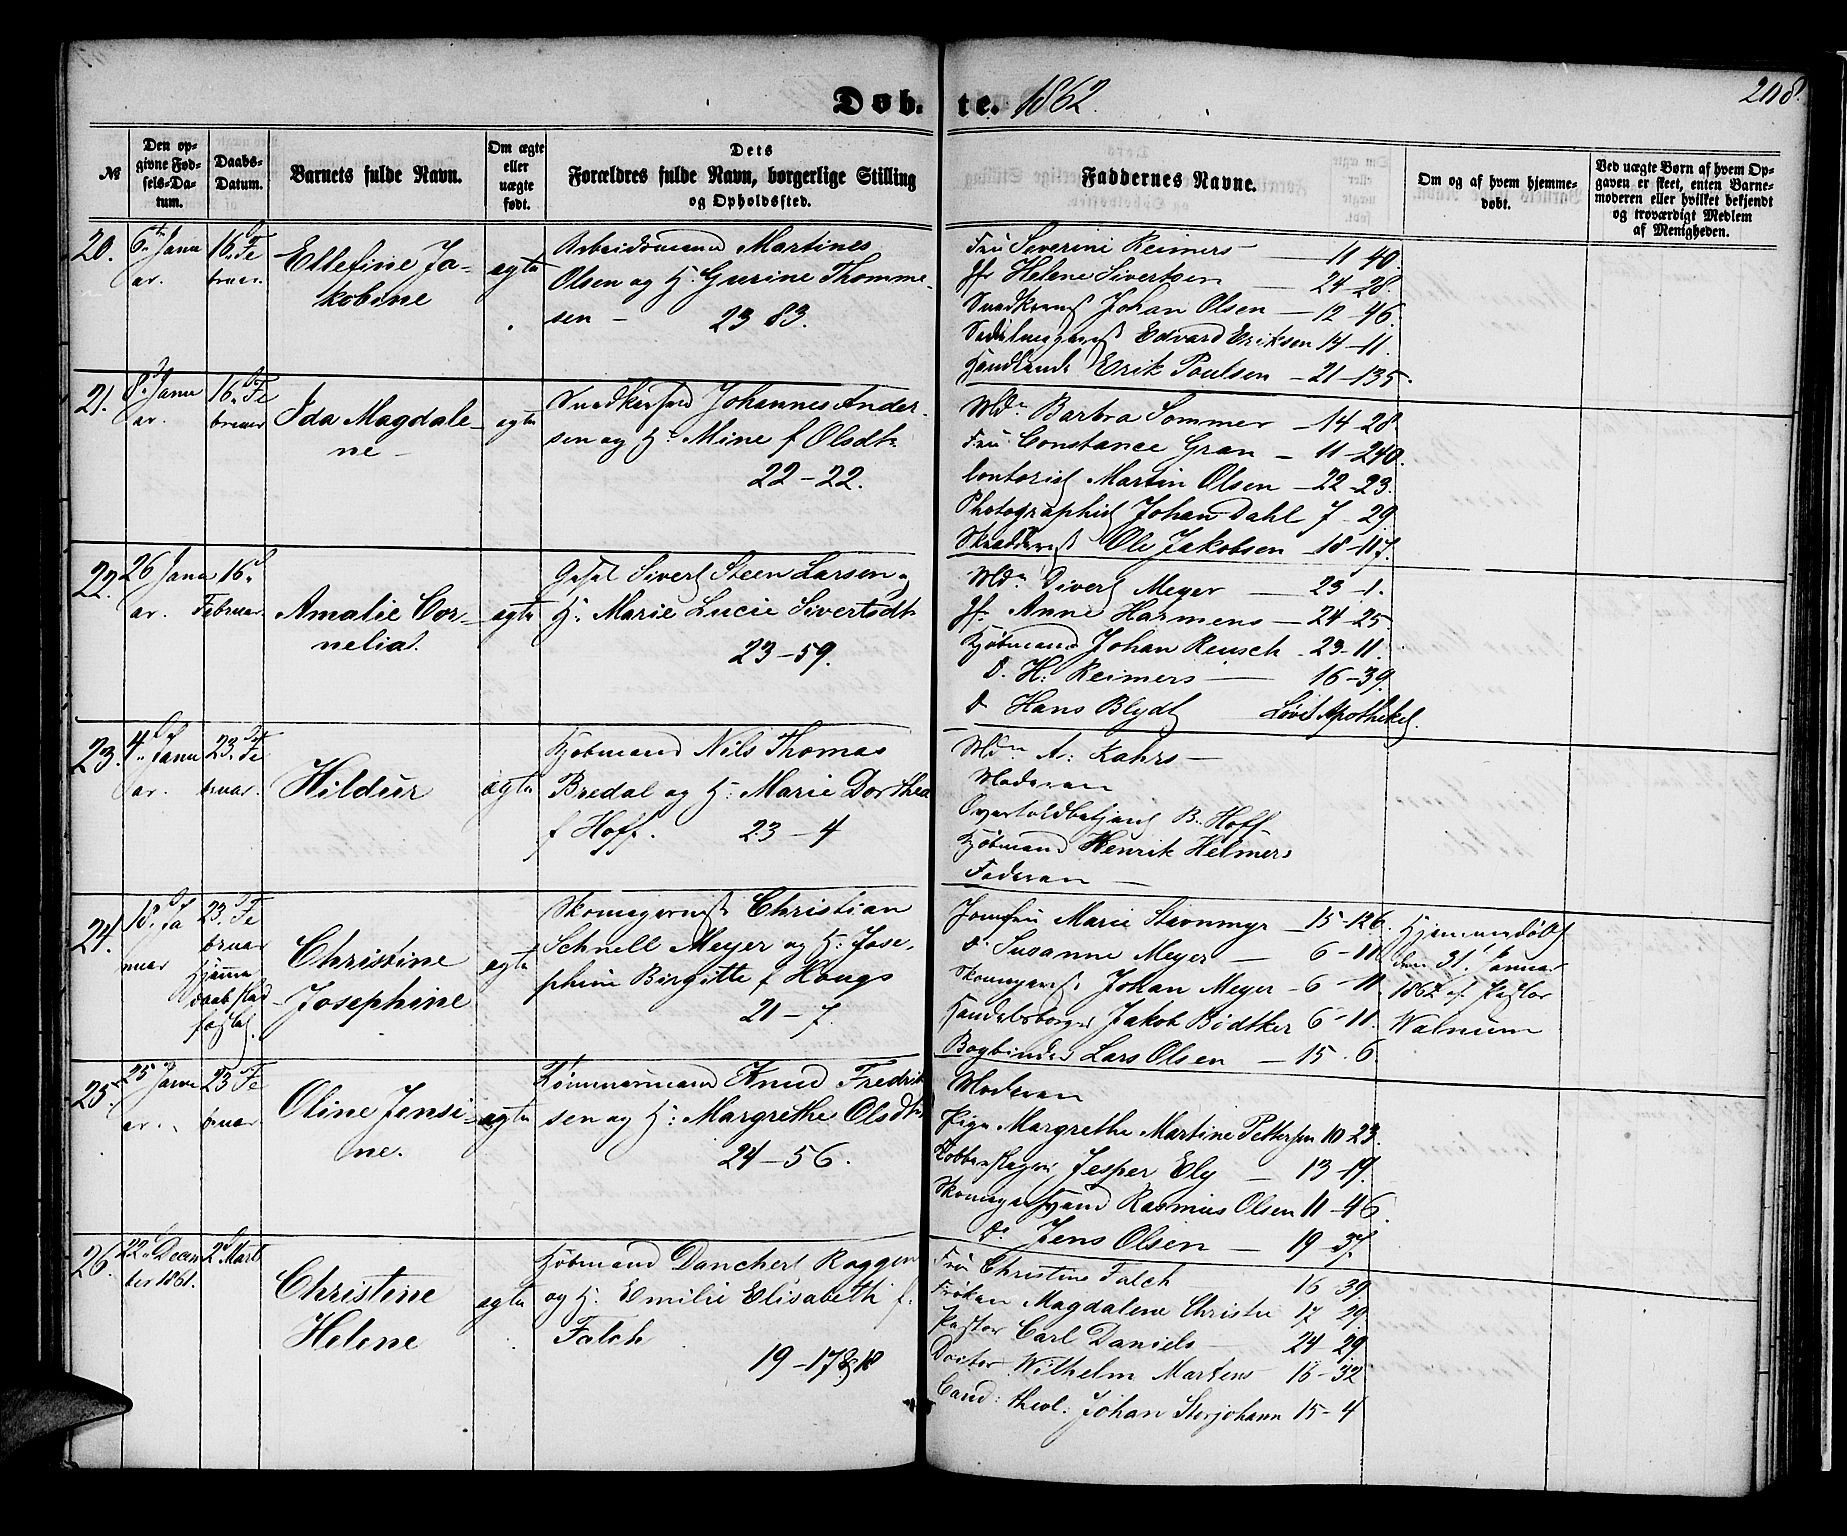 Døbte. 1862.
208.
№
Den opgivne Fødsels-Datum.
Daabs-Datum.
Barnets fulde Navn.
Om ægte eller uægte født.
Dets
Forældres fulde Navn, borgerlige Stilling
og Opholdssted.
Faddernes Navne.
Om og af hvem hjemmedøbt.
Ved uægte Børn af hvem Opgaven er skeet, enten Barnemoderen eller hvilket bekjendt og troværdigt Medlem af Menigheden.
20.
6. Janu
ar.
16. Fe
bruar.
Ellefine Ja-
kobine
ægte
Arbeidsmand Martines
Olsen og H. Gurine Thomme-
sen – 23 83.
Fru Severine Reimers – 11 40.
Jfr Helene Sivertsen – 24-28.
Snedkersv. Johan Olsen – 12-46.
Edvard Eriksen 14-11.
Erik Poulsen – 21-135.
21.
8. Janu
ar.
16. Fe
bruar
Ida Magdale-
ne –
ægte
Snedkersvd Johannes Ander-
sen og H. Mine f Olsdtr
22-22.
Md. Barbra Sommer – 14-28
Fru Constance Gran – 11-240.
Contorist Martin Olsen – 22-23.
Photographist Johan Dahl 7-29
Skræddersv. Ole Jakobsen – 18-117.
22.
26 Janu
ar.
16.
Februar
Amalie Cor-
nelia.
ægte
Sivert Steen Larsen og
H. Marie Lucie Sivertsdtr
23-59.
Md. Sivert Meyer – 23-1.
Jfr. Anne Harmens – 24-25.
Kjøbmand Johan Reusch – 23-11.
D. H. Reimers – 16-39.
D Hans Blydt Løve Apotheket.
23.
4. Janu
ar.
23. Fe
bruar.
Hildur
ægte
Kjøbmand Nils Thomas
Bredal og H. Marie Dorthea
f Hoff. 23-4
Md. A. Kahrs –
Moderen
Overtoldbetjent B. Hoff
Kjøbmand Henrik Helmers
Faderen –
24.
18. Ja
nuar
23. Fe
bruar
Hjemme
daab stad
fæstet.
Christine
Josephine
ægte
Skomagersv. Christian
Schnell Meyer og H. Jose-
phine Birgitte f Hougs
21-7.
Jomfru Marie Stronmyr – 15-126.
D. Susanne Meyer – 6-11.
Skomagersv. Johan Meyer – 6-11.
Handelsborger Jakob Bødtker 6-11.
Bogbinder Lars Olsen – 15-6.
Hjemmedøbt
den 31. Januar
1862 af Pastor
Walnum
25.
25 Janu
ar.
23 Fe
bruar
Oline Jensi-
ne.
ægte
Tømmermand Knud Fredrik
sen og H. Margrethe Olsdtr
24-56.
Moderen
Pige Margrethe Martine Pettersen 10-23.
Kobberslager Jesper Ely – 13-19.
Skomagersvend Rasmus Olsen 11-46.
D. Jens Olsen – 19-37.
26.
22. Decem
ber 1861.
2 Marts
Christine
Helene
ægte
Kjøbmand Danchert Roggen
og H. Emilie Elisabeth f.
Falch
19-17
Fru Christine Falch 16-39.
Frøken Magdalene Christie 17-29.
Pastor Carl Daniels – 24-29.
Doctor Wilhelm Martens 18-32
Cand: theol: Johan Storjohann 15-4